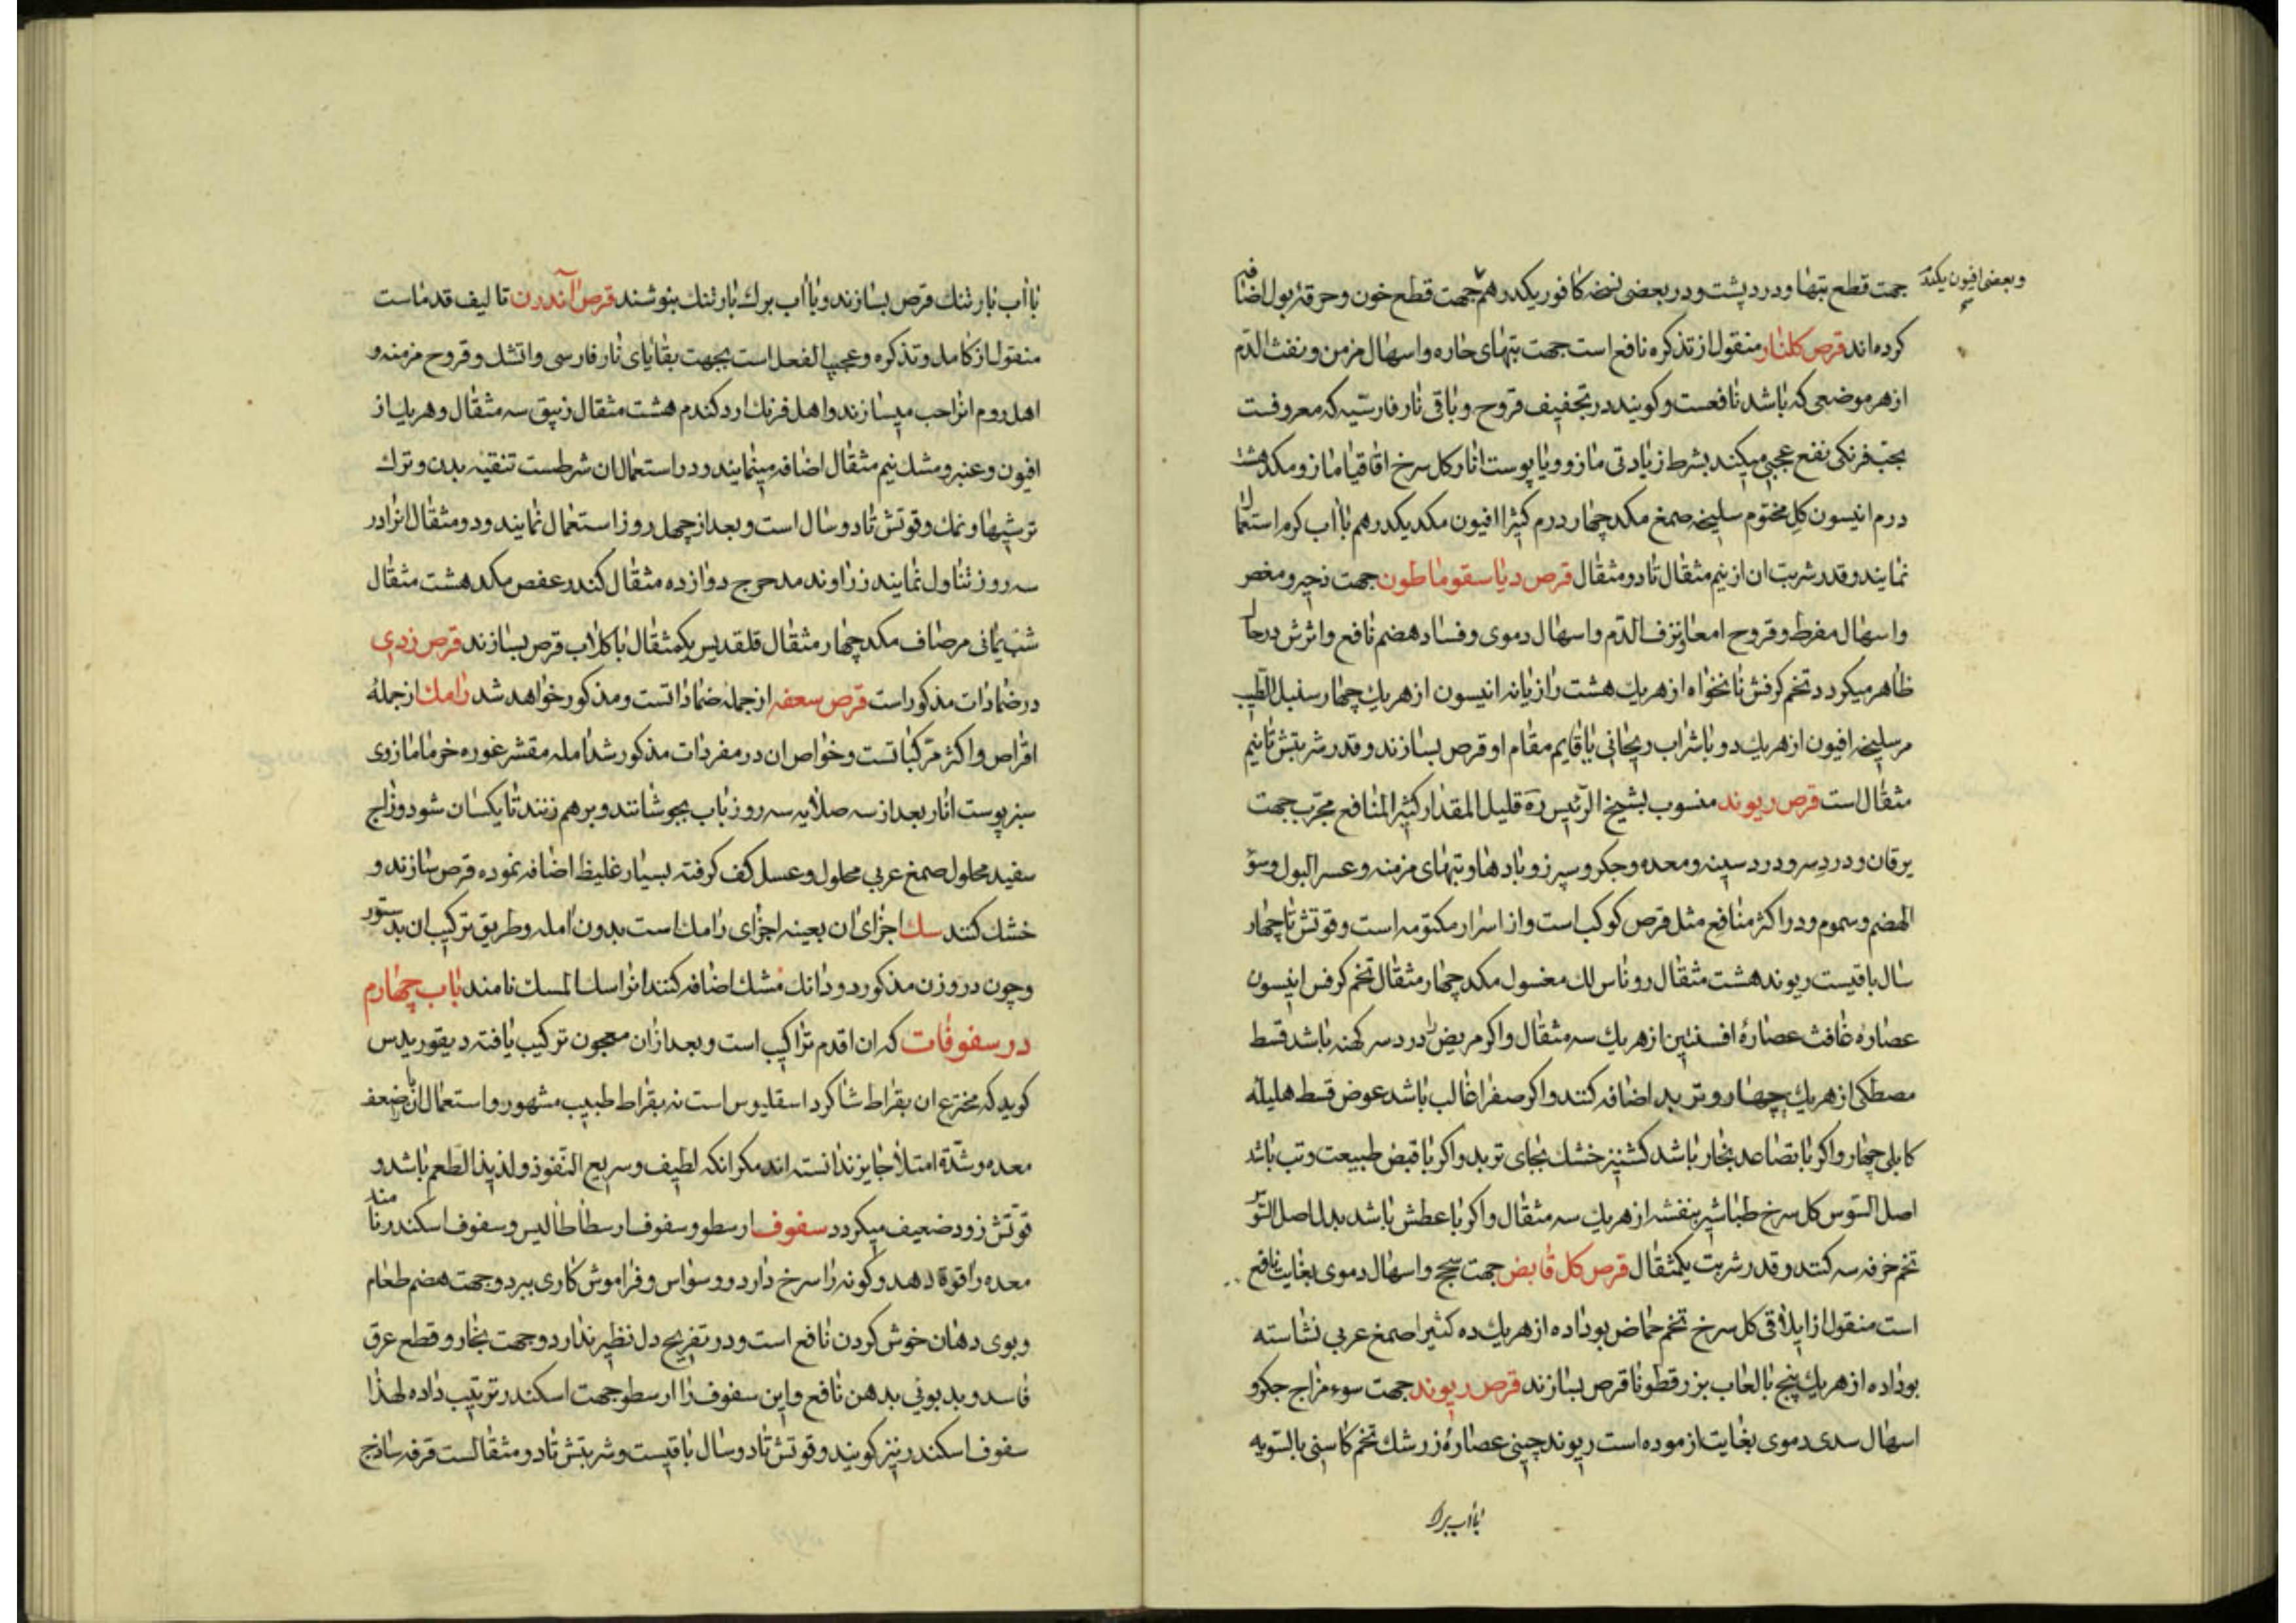 وبعضی افیون یکدرهم
جهت قطع تبها و درد پشت و در بعضی نسخه کافور یکدرهم جهت قطع خون و حرقة بول اضافه
کرده‌اند قرص کلنار منقول از تذکره نافع است جهت تبهای حاره و اسهال مزمن و نفث الدم
از هر موضعی که باشد نافعست و کویند در تجفیف قروح و باقی نار فارسیه که معروفست
بحب فرنکی نفع عجیبی میکند بشرط زیادتی مازو و یا پوست انار کل سرخ اقاقیا مازو مکد هشت
درم انیسون کل مختوم سلیخه صمغ مکد چهار درم کثیرا افیون مکد یکدرهم با آب کرم استعمال
نمایند و قدر شربت ان از نیم مثقال تا دو مثقال قرص دیاسقوماطون جهت زحیر و مغص
و اسهال مفرط و قروح امعا و نزف الدم و اسهال دموی و فساد هضم نافع و اثرش در حال
ظاهر میکردد تخم کرفش نانخواه از هر یك هشت رازیانه انیسون از هر یك چهار سنبل الطیب
مر سلیخه افیون از هر یك دو با شراب ریحانی یا قایم مقام او قرص بسازند و قدر شربتش تا نیم
مثقال است قرص ریوند منسوب بشیخ الرئیس ره قلیل المقدار کثیر المنافع مجرب جهت
یرقان و درد سر و درد سینه و معده و جکر و سپرز و بادها و تبهای مزمنه و عسر البول و سؤ
الهضم و سموم و در اکثر منافع مثل قرص کوکب است و از اسرار مکتومه است و قوتش تا چهار
سال باقیست ریوند هشت مثقال روناس لك مغسول مکد چهار مثقال تخم کرفس انیسون
عصاره غافث عصارۀ افسنتین از هر یك سه مثقال و اکر مریض را درد سر کهنه باشد قسط
مصطکی از هر یك چهار و تربد اضافه کنند و اکر صفرا غالب باشد عوض قسط هلیله
کابلی چهار و اکر با تصاعد بخار باشد کشنیز خشك بجای تربد و اکر با قبض طبیعت و تب باشد
اصل السوس کل سرخ طباشیر بنفشه از هر یك سه مثقال و اکر با عطش باشد بدل اصل السوس
تخم خرفه سه کنند و قدر شربت یکمثقال قرص کل قابض جهت سحج و اسهال دموی بغایت نافع
است منقول از ایلاقی کل سرخ تخم حماض بوداده از هر یك ده کثیرا صمغ عربی نشاسته
بوداده از هر یك پنج بالعاب بزرقطونا قرص بسازند قرص ریوند جهت سوء مزاج جکر و
اسهال سدی دموی بغایت ازموده است ریوند چینی عصارۀ زرشك تخم کاسنی بالسویه
با آب برك
با آب بارتنك قرص بسازند و با آب برك بارتنك بنوشند قرص آندرن تالیف قدماست
منقول از کامل و تذکره و عجیب الفعل است بجهت بقایای نار فارسی و اتشك و قروح مزمنه و
اهل روم انرا حب میسازند و اهل فرنك ارد کندم هشت مثقال زیبق سه مثقال و هر یك از
افیون و عنبر و مشك نیم مثقال اضافه مینمایند و در استعمال ان شرطست تنقیه بدن و ترك
ترشیها و نمك و قوتش تا دو سال است و بعد از چهل روز استعمال نمایند و دو مثقال انرا در
سه روز تناول نمایند زراوند مدحرج دوازده مثقال کندر عفص مکد هشت مثقال
شب یمانی مرصاف مکد چهار مثقال قلقدیس یکمثقال با کلاب قرص بسازند قرص زدی
در ضمادات مذکور است قرص سعفه از جمله ضماداتست و مذکور خواهد شد رامك از جملۀ
اقراص و اکثر مرکباتست و خواص ان در مفردات مذکور شد امله مقشر غوره خرما مازوی
سبز پوست انار بعد از سه صلایه سه روز باب بجوشانند و برهم زنند تا یکسان شود و زاج
سفید محلول صمغ عربی محلول و عسل کف کرفته بسیار غلیظ اضافه نموده قرص سازند و
خشك کنند سك اجزای ان بعینه اجزای رامك است بدون امله و طریق ترکیب ان بدستور
و چون در وزن مذکور دو دانك مشك اضافه کنند انرا سك المسك نامند باب چهارم
در سفوفات که ان اقدم تراکیب است و بعد ازان معجون ترکیب یافته دیقوریدس
کوید که مخترع ان بقراط شاکرد اسقلیوس است نه بقراط طبیب مشهور و استعمال ان با ضعف
معده و شدة امتلا جایز ندانسته اند مکر انکه لطیف و سریع النفوذ و لذیذ الطعم باشد و
قوتش زود ضعیف میکردد سفوف ارسطو و سفوف ارسطاطالیس و سفوف اسکندر نامند
معده را قوة دهد و کونه را سرخ دارد و وسواس و فراموش کاری ببرد و جهت هضم طعام
و بوی دهان خوش کردن نافع است و در تفریح دل نظیر ندارد و جهت بخار و قطع عرق
فاسد و بدبوئی بدهن نافع و این سفوف را ارسطو جهت اسکندر ترتیب داده لهذا
سفوف اسکندر نیز کویند و قوتش تا دو سال باقیست و شربتش تا دو مثقالست قرفه ساذج